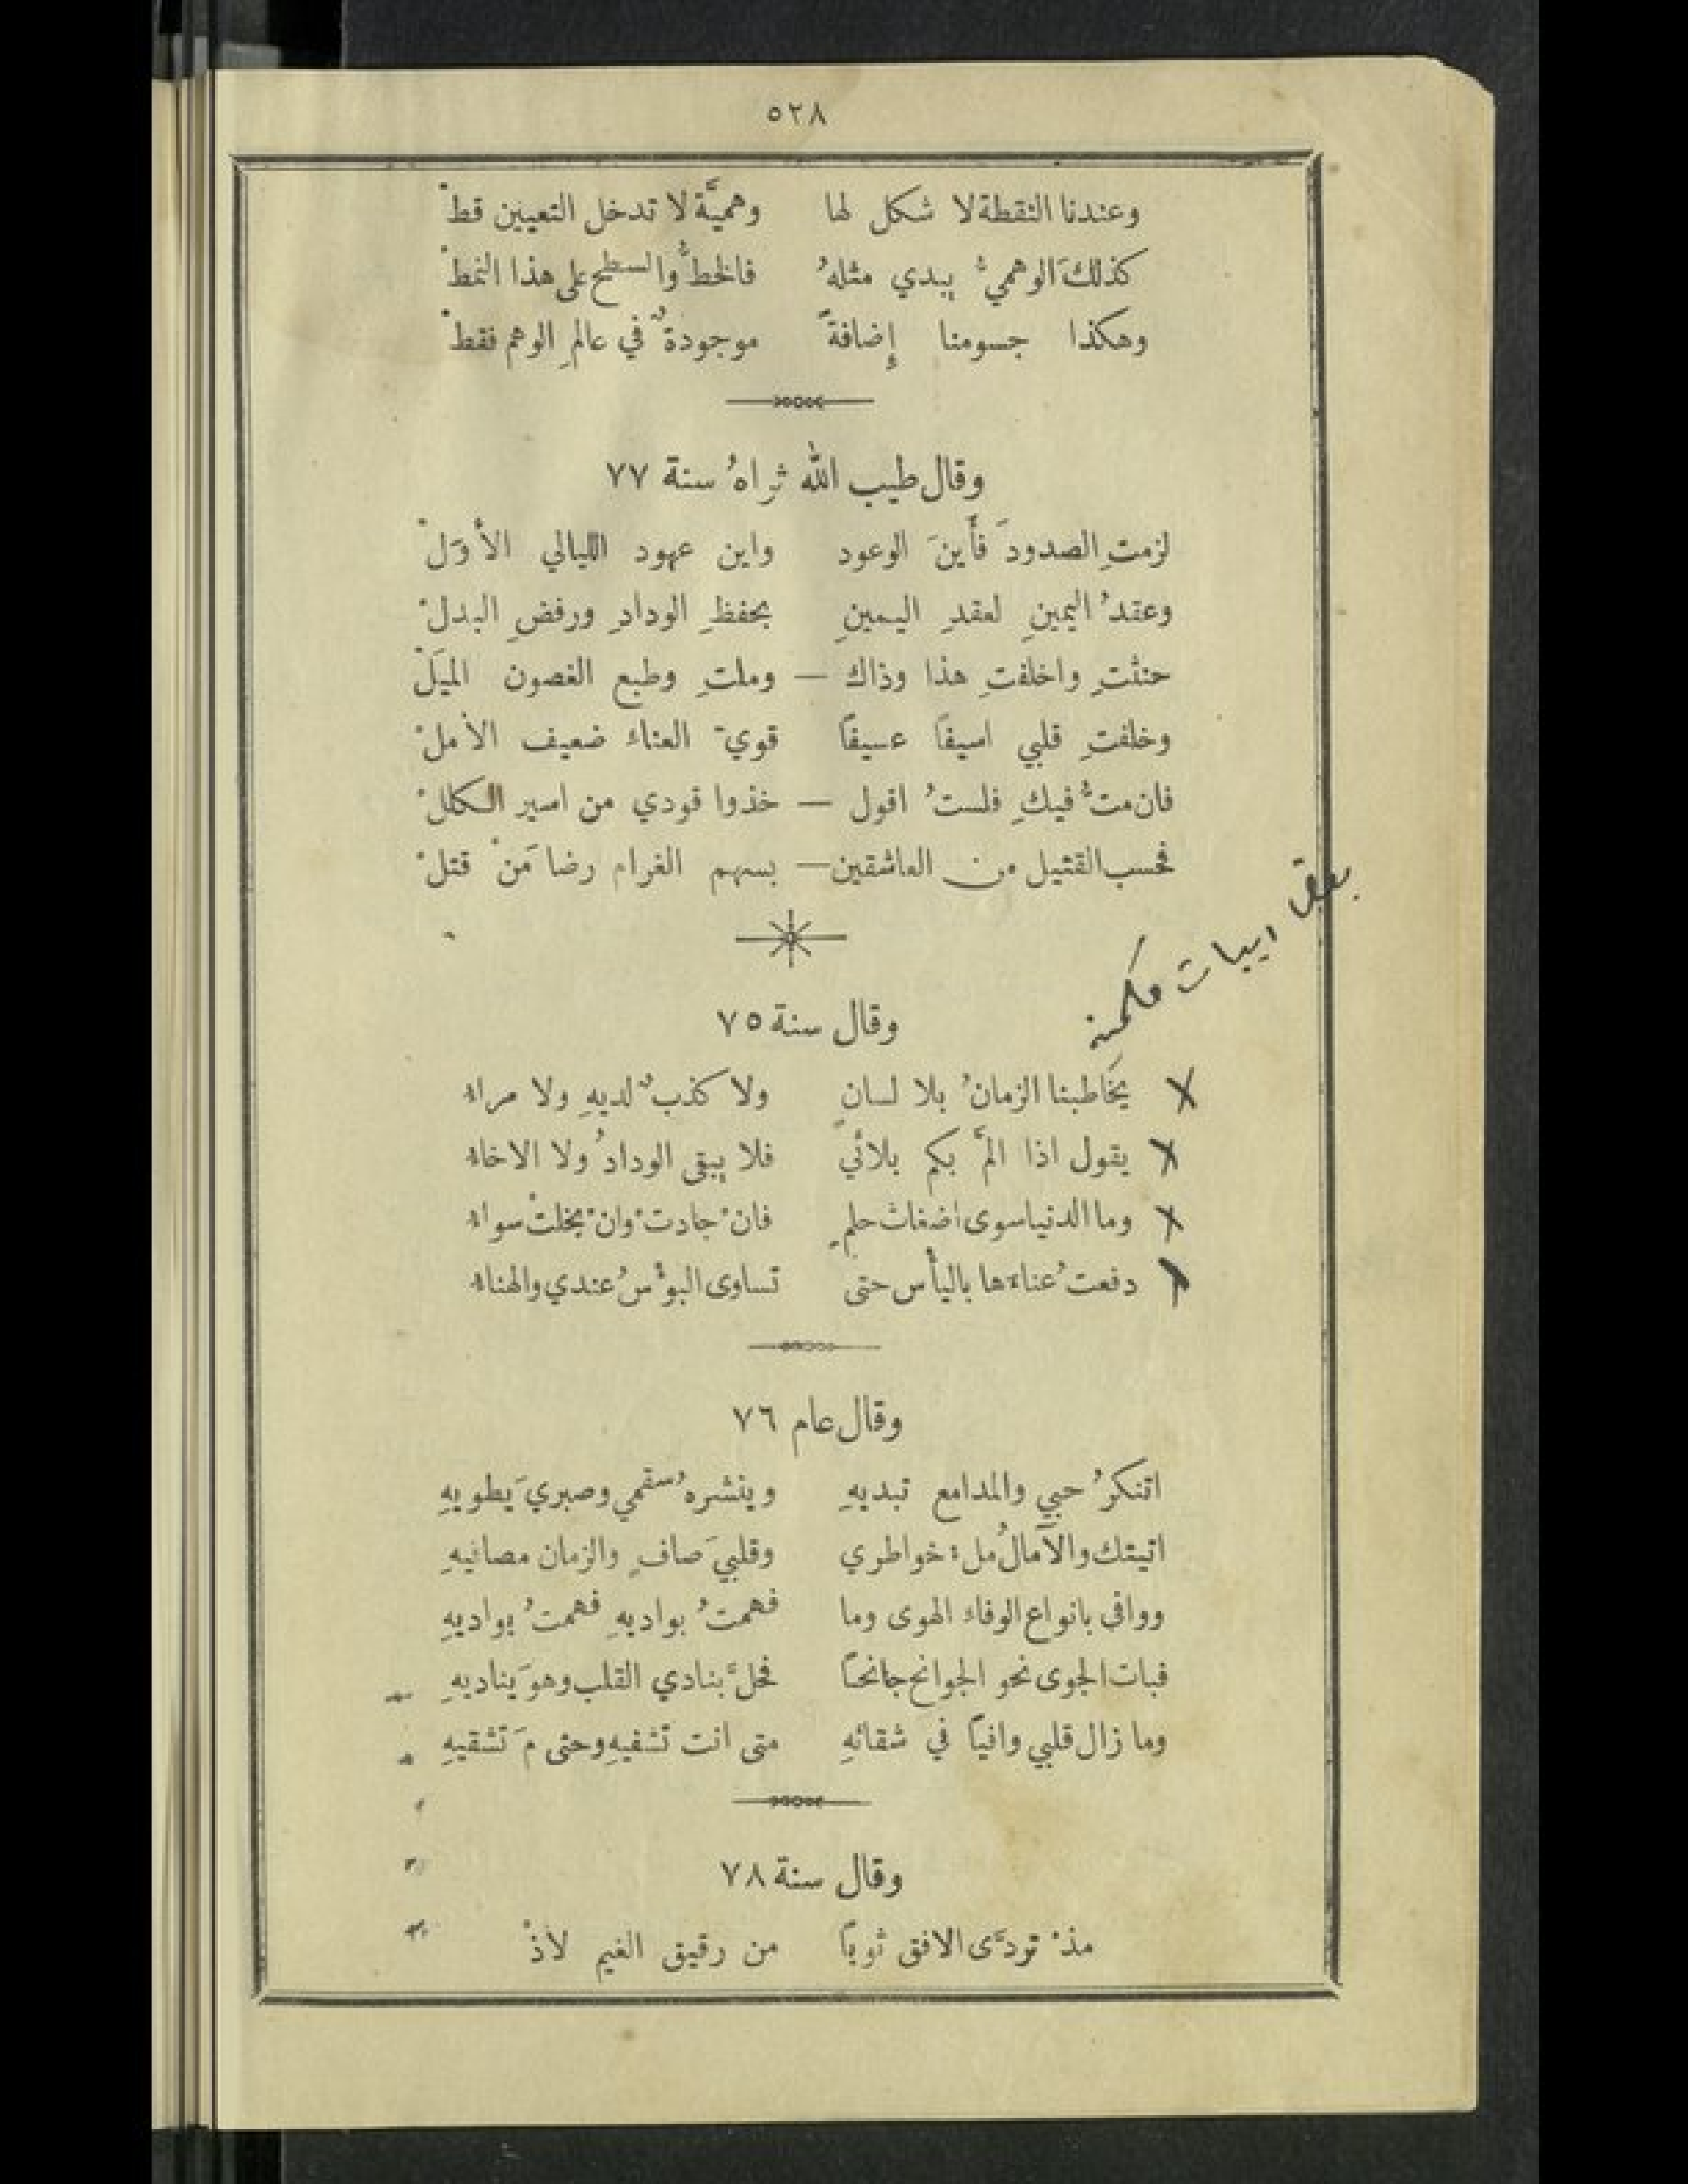 ٥٢٨
وعندنا النقطة لا شكل لها وهميَّة لا تدخل التعيين قطْ
كذلكَ الوهميُّ يبدي مثلهُ فالخطُّ والسطح على هذا النمطْ
وهكذا جسومنا إِضافةً موجودةٌ في عالمِ الوهم فقطْ
وقال طيب الله ثراهُ سنة ٧٧
لزمتِ الصدودَ فأَينَ الوعود واين عهود الليالي الأُوَلْ
وعقدُ اليمينِ لعقدِ اليمينِ بحفظِ الودادِ ورفضِ البدلْ
حنثتِ واخلفتِ هذا وذاك — وملتِ وطبع الغصون الميَلْ
وخلفتِ قلبي اسيفًا عسيفًا قويَّ العناء ضعيف الأملْ
فان متُّ فيكِ فلستُ اقول — خذوا قودي من اسير الكللْ
فحسب القتيل من العاشقين — بسهم الغرام رضا مَنْ قتلْ
ابيات
وقال سنة ٧٥
يخَاطبنا الزمانُ بلا لسانٍ ولا كذبٌ لديهِ ولا مراءُ
يقول اذا المَّ بكم بلائي فلا يبقى الودادُ ولا الاخاءُ
وما الدنيا سوى اضغاث حلمٍ فانْ جادتْ وانْ بخلتْ سواءُ
دفعتُ عناءَها باليأس حتى تساوى البؤْسُ عندي والهناءُ
وقال عام ٧٦
اتنكرُ حبي والمدامع تبديهِ وينشرهُ سقمي وصبريَ يطويهِ
اتيتك والآمالُ ملءُ خواطري وقلبيَ صافٍ والزمان مصافيهِ
ووافى بانواع الوفاء الهوى وما فهمتُ بواديهِ فهمتُ بواديهِ
فبات الجوى نحو الجوانح جانحًا فحلَّ بنادي القلب وهوَ يناديهِ
وما زال قلبي وافيًا في شقائهِ متى انت تشفيهِ وحتى مَ تشقيهِ
وقال سنة ٧٨
مذْ تردَّى الافق ثوبًا من رقيق الغيم لاذْ